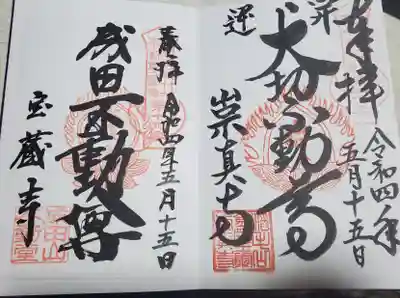 奉拝
令和四年五月十五日
昇運
大切不動尊
崇真寺
奉拝
令和四年五月十五日
成田不動尊
宝蔵寺